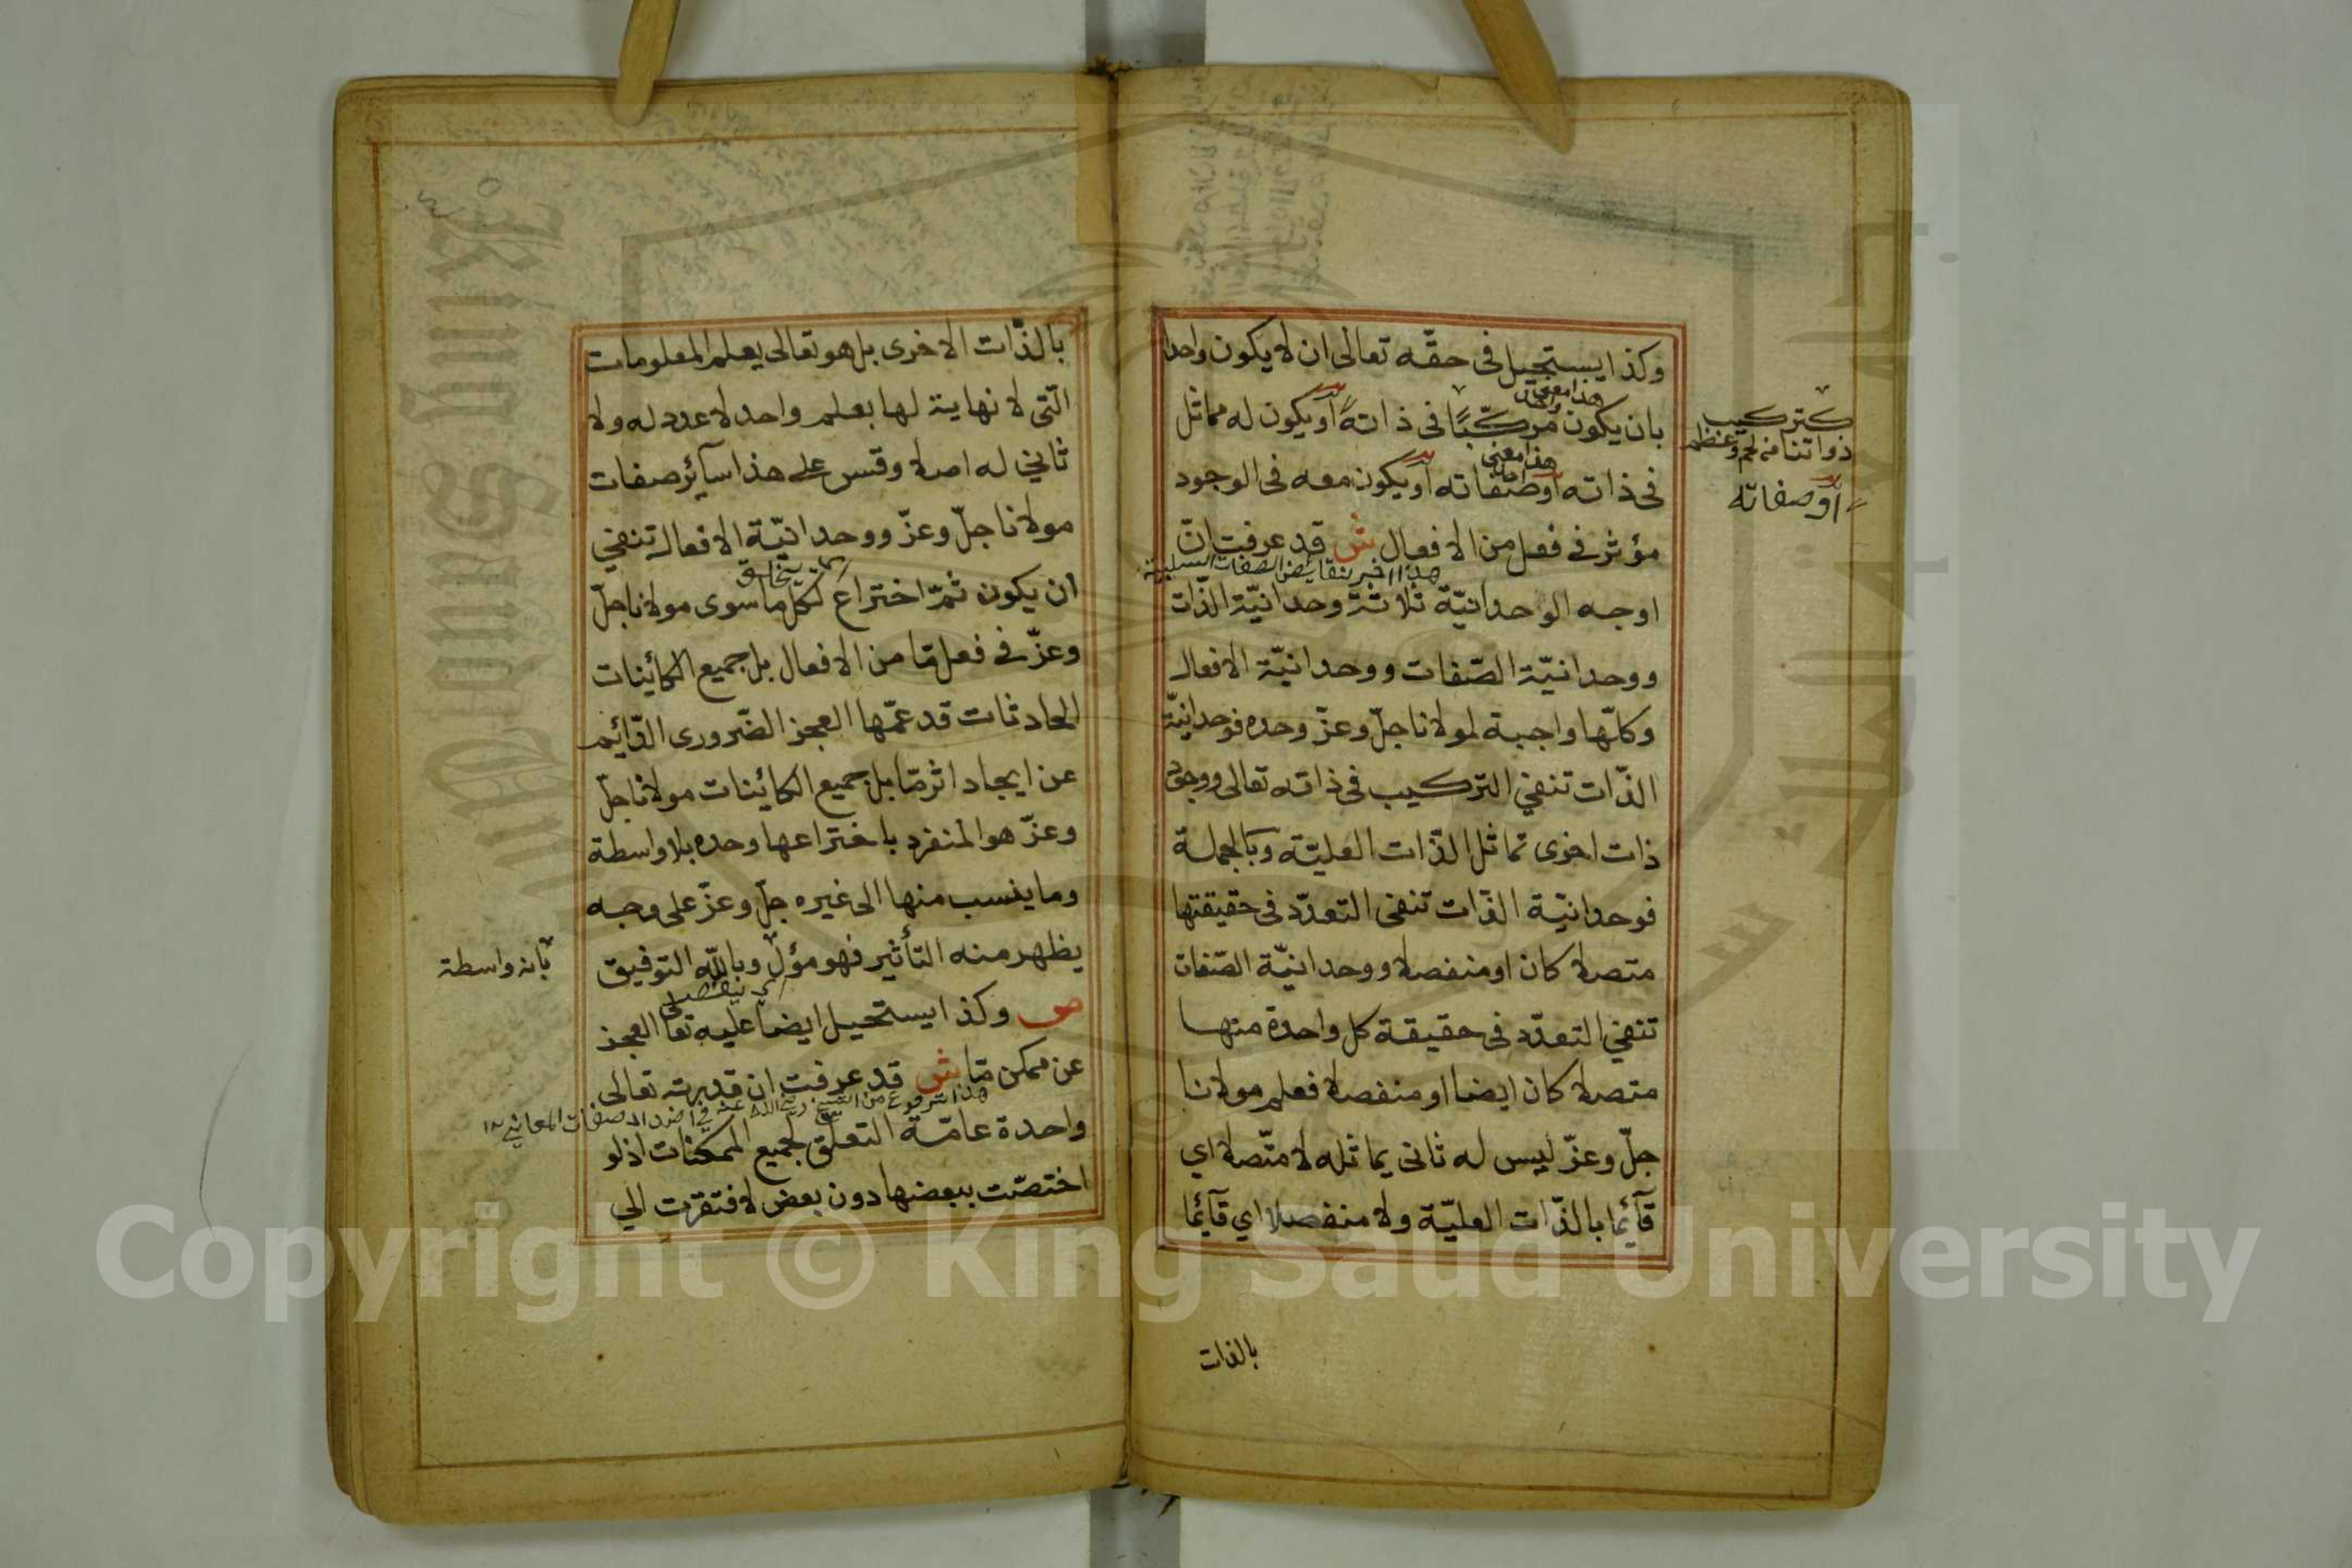 وكذا يستحيل في حقّه تعالى ان لا يكون واحدا
بان يكون مركّبًا في ذاته او يكون له مماثل
في ذاته او صفاته او يكون معه في الوجود
مؤثر في فعل من الافعال ش قد عرفت انّ
اوجه الوحدانيّة ثلاثة وحدانيّة الذّات
ووحدانيّة الصّفات ووحدانيّة الافعال
وكلّها واجبة لمولانا جلّ وعزّ وحده فوحدانيّة
الذّات تنفي التركيب في ذاته تعالى ووجود
ذات اخرى تماثل الذّات العليّة وبالجملة
فوحدانيّة الذّات تنفي التعدّد في حقيقتها
متصلا كان او منفصلا ووحدانيّة الصّفات
تنفي التعدّد في حقيقة كل واحدة منها
متصلا كان ايضا او منفصلا فعلم مولانا
جلّ وعزّ ليس له ثاني يماثله لا متّصلا اي
قآئما بالذّات العليّة ولا منفصلا اي قآئما
بالذات
كتركيب
ذواتنا من لحم وعظم
او صفاته
هذا معنى
هذا معنى
بالذّات الاخرى بل هو تعالى يعلم المعلومات
الّتي لا نهاية لها بعلم واحد لا عدد له ولا
ثاني له اصلا وقس على هذا سآئر صفات
مولانا جلّ وعزّ ووحدانيّة الافعال تنفي
ان يكون ثمّ اختراع لكل ما سوى مولانا جلّ
وعزّ في فعل مّا من الافعال بل جميع الكائينات
الحادثات قد عمّها العجز الضّروري الدّائيم
عن ايجاد اثر مّا بل جميع الكائينات مولانا جلّ
وعزّ هو المنفرد باختراعها وحده بلا واسطة
وما ينسب منها الى غيره جلّ وعزّ على وجه
يظهر منه التأثير فهو مؤل وبالله التوفيق
ص وكذا يستحيل ايضا عليه تعالى العجز
عن ممكن مّا ش قد عرفت ان قدرته تعالى
واحدة عامّة التعلّق لجميع الممكنات اذ لو
اختصّت ببعضها دون بعض لافتقرت الي
بانه واسطة
Copyright © King Saud University